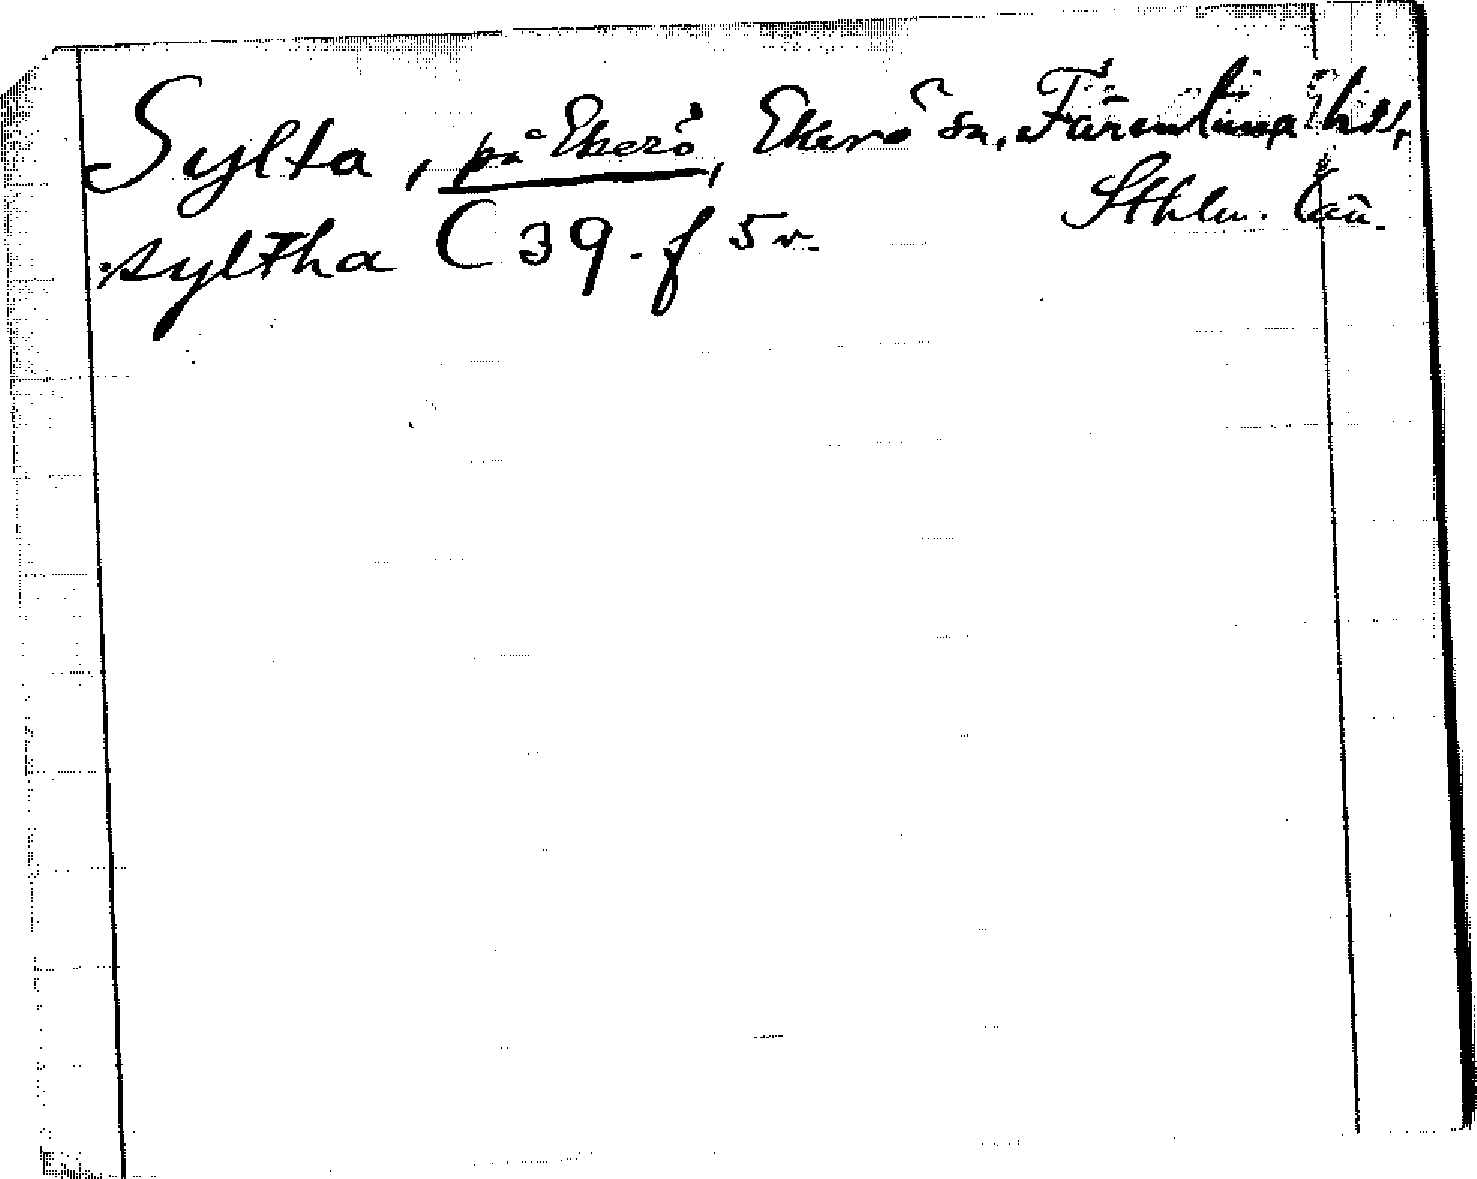 Sylta, på Ekerö, Ekerö sn, Färentuna hd,
Sthlm. län.
syltha C 39. f 5 v.